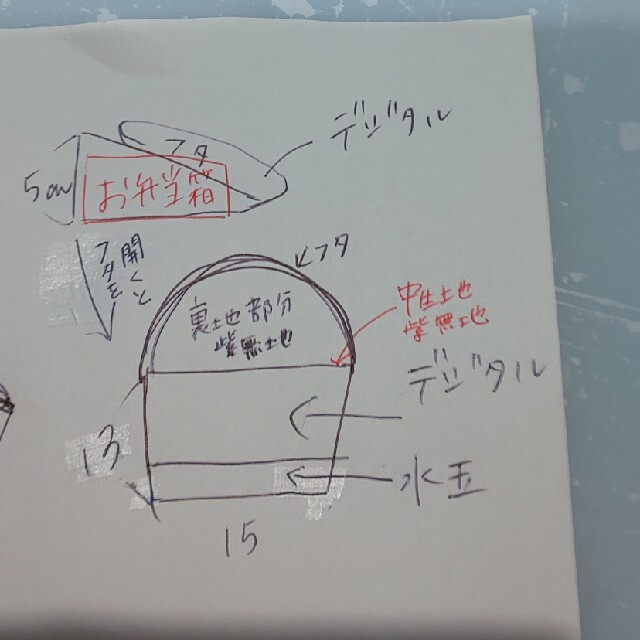 デジタル
フタ
5cm
お弁当箱
フタを
開くと
フタ
裏地部分
紫無地
中生土也
紫無地
デジタル
13
水玉
15